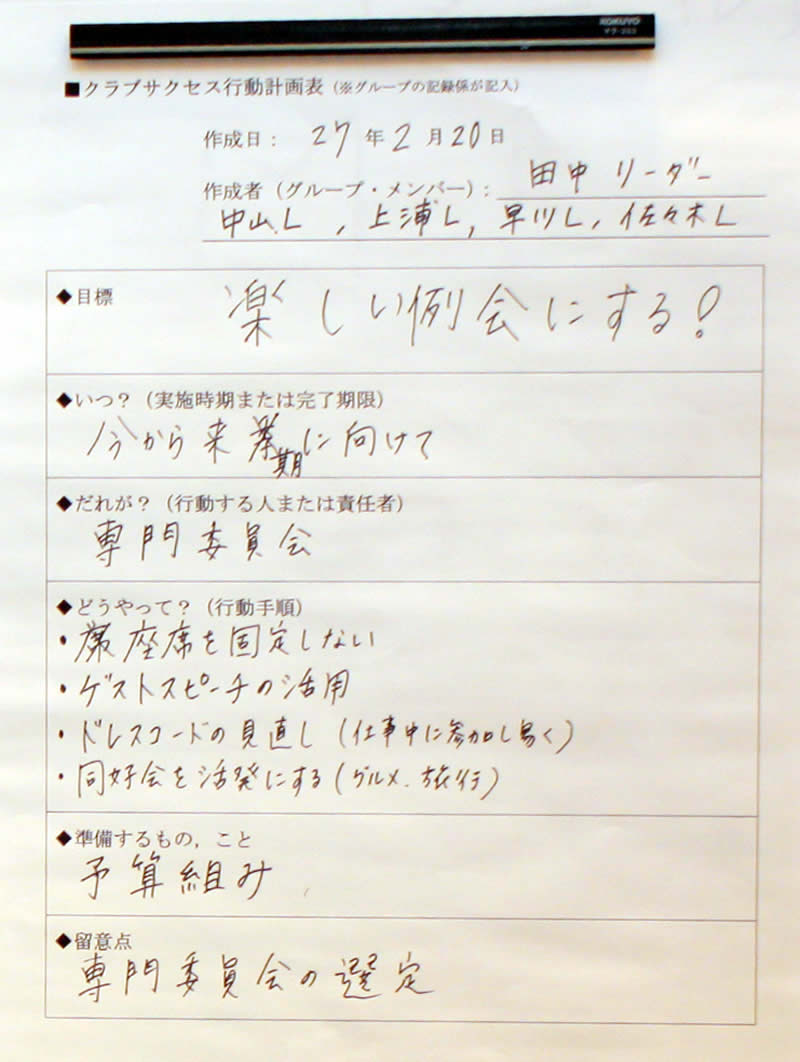 KOKUYO
■クラブサクセス行動計画表（※グループの記録係が記入）
作成日： 27年2月20日
作成者（グループ・メンバー）： 田中リーダー
中山L，上浦L，早川L，佐々木L
◆目標
楽しい例会にする！
◆いつ？（実施時期または完了期限）
今から来期に向けて
◆だれが？（行動する人または責任者）
専門委員会
◆どうやって？（行動手順）
・座席を固定しない
・ゲストスピーチの活用
・ドレスコードの見直し（仕事中に参加し易く）
・同好会を活発にする（グルメ、旅行）
◆準備するもの，こと
予算組み
◆留意点
専門委員会の選定